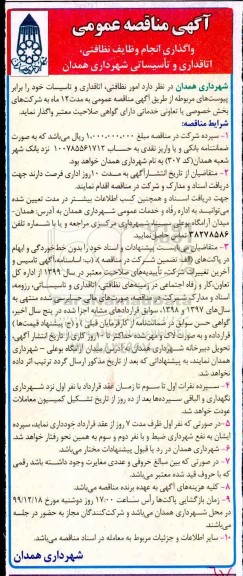 آگهی مناقصه عمومی
واگذاری انجام وظایف نظافتی،
اتاقداری و تأسیساتی شهرداری همدان
شهرداری همدان در نظر دارد امور نظافتی، اتاقداری و تاسیسات خود را برابر
پیوست‌های مربوطه از طریق آگهی مناقصه عمومی به مدت ۱۲ ماه به شرکت‌های
بخش خصوصی یا تعاونی خدماتی دارای گواهی صلاحیت معتبر واگذار نماید.
شرایط مناقصه:
۱- سپرده شرکت در مناقصه مبلغ ۱.۰۰۰.۰۰۰.۰۰۰ ریال می‌باشد که به صورت
ضمانتنامه بانکی و یا واریز نقدی به حساب ۱۰۰۷۸۵۵۶۱۷۱۲ نزد بانک شهر
شعبه همدان(کد ۳۰۷) به نام شهرداری همدان خواهد بود.
۲- متقاضیان از تاریخ انتشارآگهی به مدت ۱۰ روز اداری فرصت دارند جهت
دریافت اسناد و مدارک و شرکت در مناقصه اقدام نمایند.
جهت دریافت اسناد و همچنین کسب اطلاعات بیشتر در مدت تعیین شده
می‌توانید به اداره رفاه و خدمات عمومی شهرداری همدان به آدرس: همدان-
میدان آرامگاه بوعلی سینا- شهرداری مرکزی مراجعه و یا با شماره تلفن
۳۸۲۷۸۵۸۶ تماس حاصل نمایند.
۳- متقاضیان می‌بایست پیشنهادات و اسناد خود را بدون خط‌خوردگی و ابهام
در پاکت‌های (الف تضمین شرکت در مناقصه)، (ب اساسنامه آگهی تاسیس و
آخرین تغییرات شرکت، تأییدیه‌های صلاحیت معتبر در سال ۱۳۹۹ از اداره کل
تعاون، کار و رفاه اجتماعی در زمینه‌های نظافتی، اتاقداری و تاسیساتی، رزومه،
اسناد و مدارک شرکت در مناقصه، صورت‌های مالی حسابرسی شده منتهی به
سال‌های ۱۳۹۷ و ۱۳۹۸، سوابق قراردادهای مشابه اجرا شده در پنج سال اخیر،
گواهی حسن سوابق در ضمانتنامه از کارفرمایان قبلی) و (ج پیشنهاد قیمت‌ها)
قرارداده و به صورت لاک و مهر شده حداکثر تا ۱۰ روز کاری از تاریخ انتشار آگهی،
تحویل دبیرخانه شهرداری همدان به آدرس: میدان آرامگاه بوعلی - شهرداری
همدان نمایند، به پیشنهاداتی که بعد از تاریخ مذکور ارسال گردد ترتیب اثر داده
نخواهد شد.
۴- سپرده نفرات اول تا سوم تا زمان عقد قرارداد با نفر اول نزد شهرداری
نگهداری و الباقی سپرده‌ها بعد از ده روز از تاریخ تشکیل کمیسیون معاملات
عودت خواهد شد.
۵- در صورتی که نفر اول ظرف مدت ۷ روز از عقد قرارداد خودداری نماید، سپرده
ایشان به نفع شهرداری ضبط و با نفر دوم و سوم به همین نحو رفتار خواهد شد.
۶- شهرداری همدان در رد یا قبول پیشنهادات مختار می‌باشد.
۷- در صورتی که بین مبالغ حروفی و عددی مغایرت وجود داشته باشد رقمی
که با حروف قید شده معتبر می‌باشد.
۸- کلیه هزینه‌های آگهی به عهده برنده مناقصه می‌باشد.
۹- زمان بازگشایی پاکت‌ها رأس ساعت ۱۷:۰۰ روز دوشنبه مورخ ۹۹/۱۲/۱۸
در محل شهرداری همدان می‌باشد و شرکت‌کنندگان مجاز به حضور در جلسه
می‌باشند.
۱۰- سایر اطلاعات و جزئیات مربوط به معامله در اسناد مناقصه می‌باشد.
شهرداری همدان